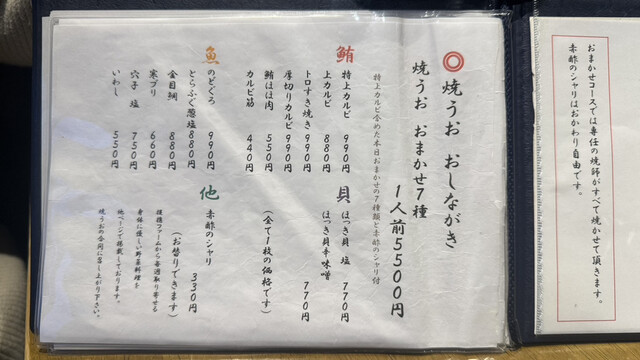 おまかせコースでは専任の焼師がすべて焼かせて頂きます。
赤酢のシャリはおかわり自由です。
◎焼うお おしながき
焼うお おまかせ7種
1人前5500円
特上カルビ含めた本日おまかせの7種類と赤酢のシャリ付
鮪
特上カルビ 990円
上カルビ 880円
トロすき焼き 990円
厚切りカルビ 990円
鮪ほほ肉 550円
カルビ筋 440円
魚
のどぐろ 990円
とらふぐ葱塩 880円
金目鯛 880円
寒ブリ 660円
穴子 塩 750円
いわし 550円
貝
ほっき貝 塩 770円
ほっき貝辛味噌 770円
(全て1枚の価格です)
他
赤酢のシャリ 330円
(お替りできます)
提携ファームから毎週取り寄せる
身体に優しい野菜料理を
他ページで掲載しております。
焼うおの合間に召し上がり下さい。